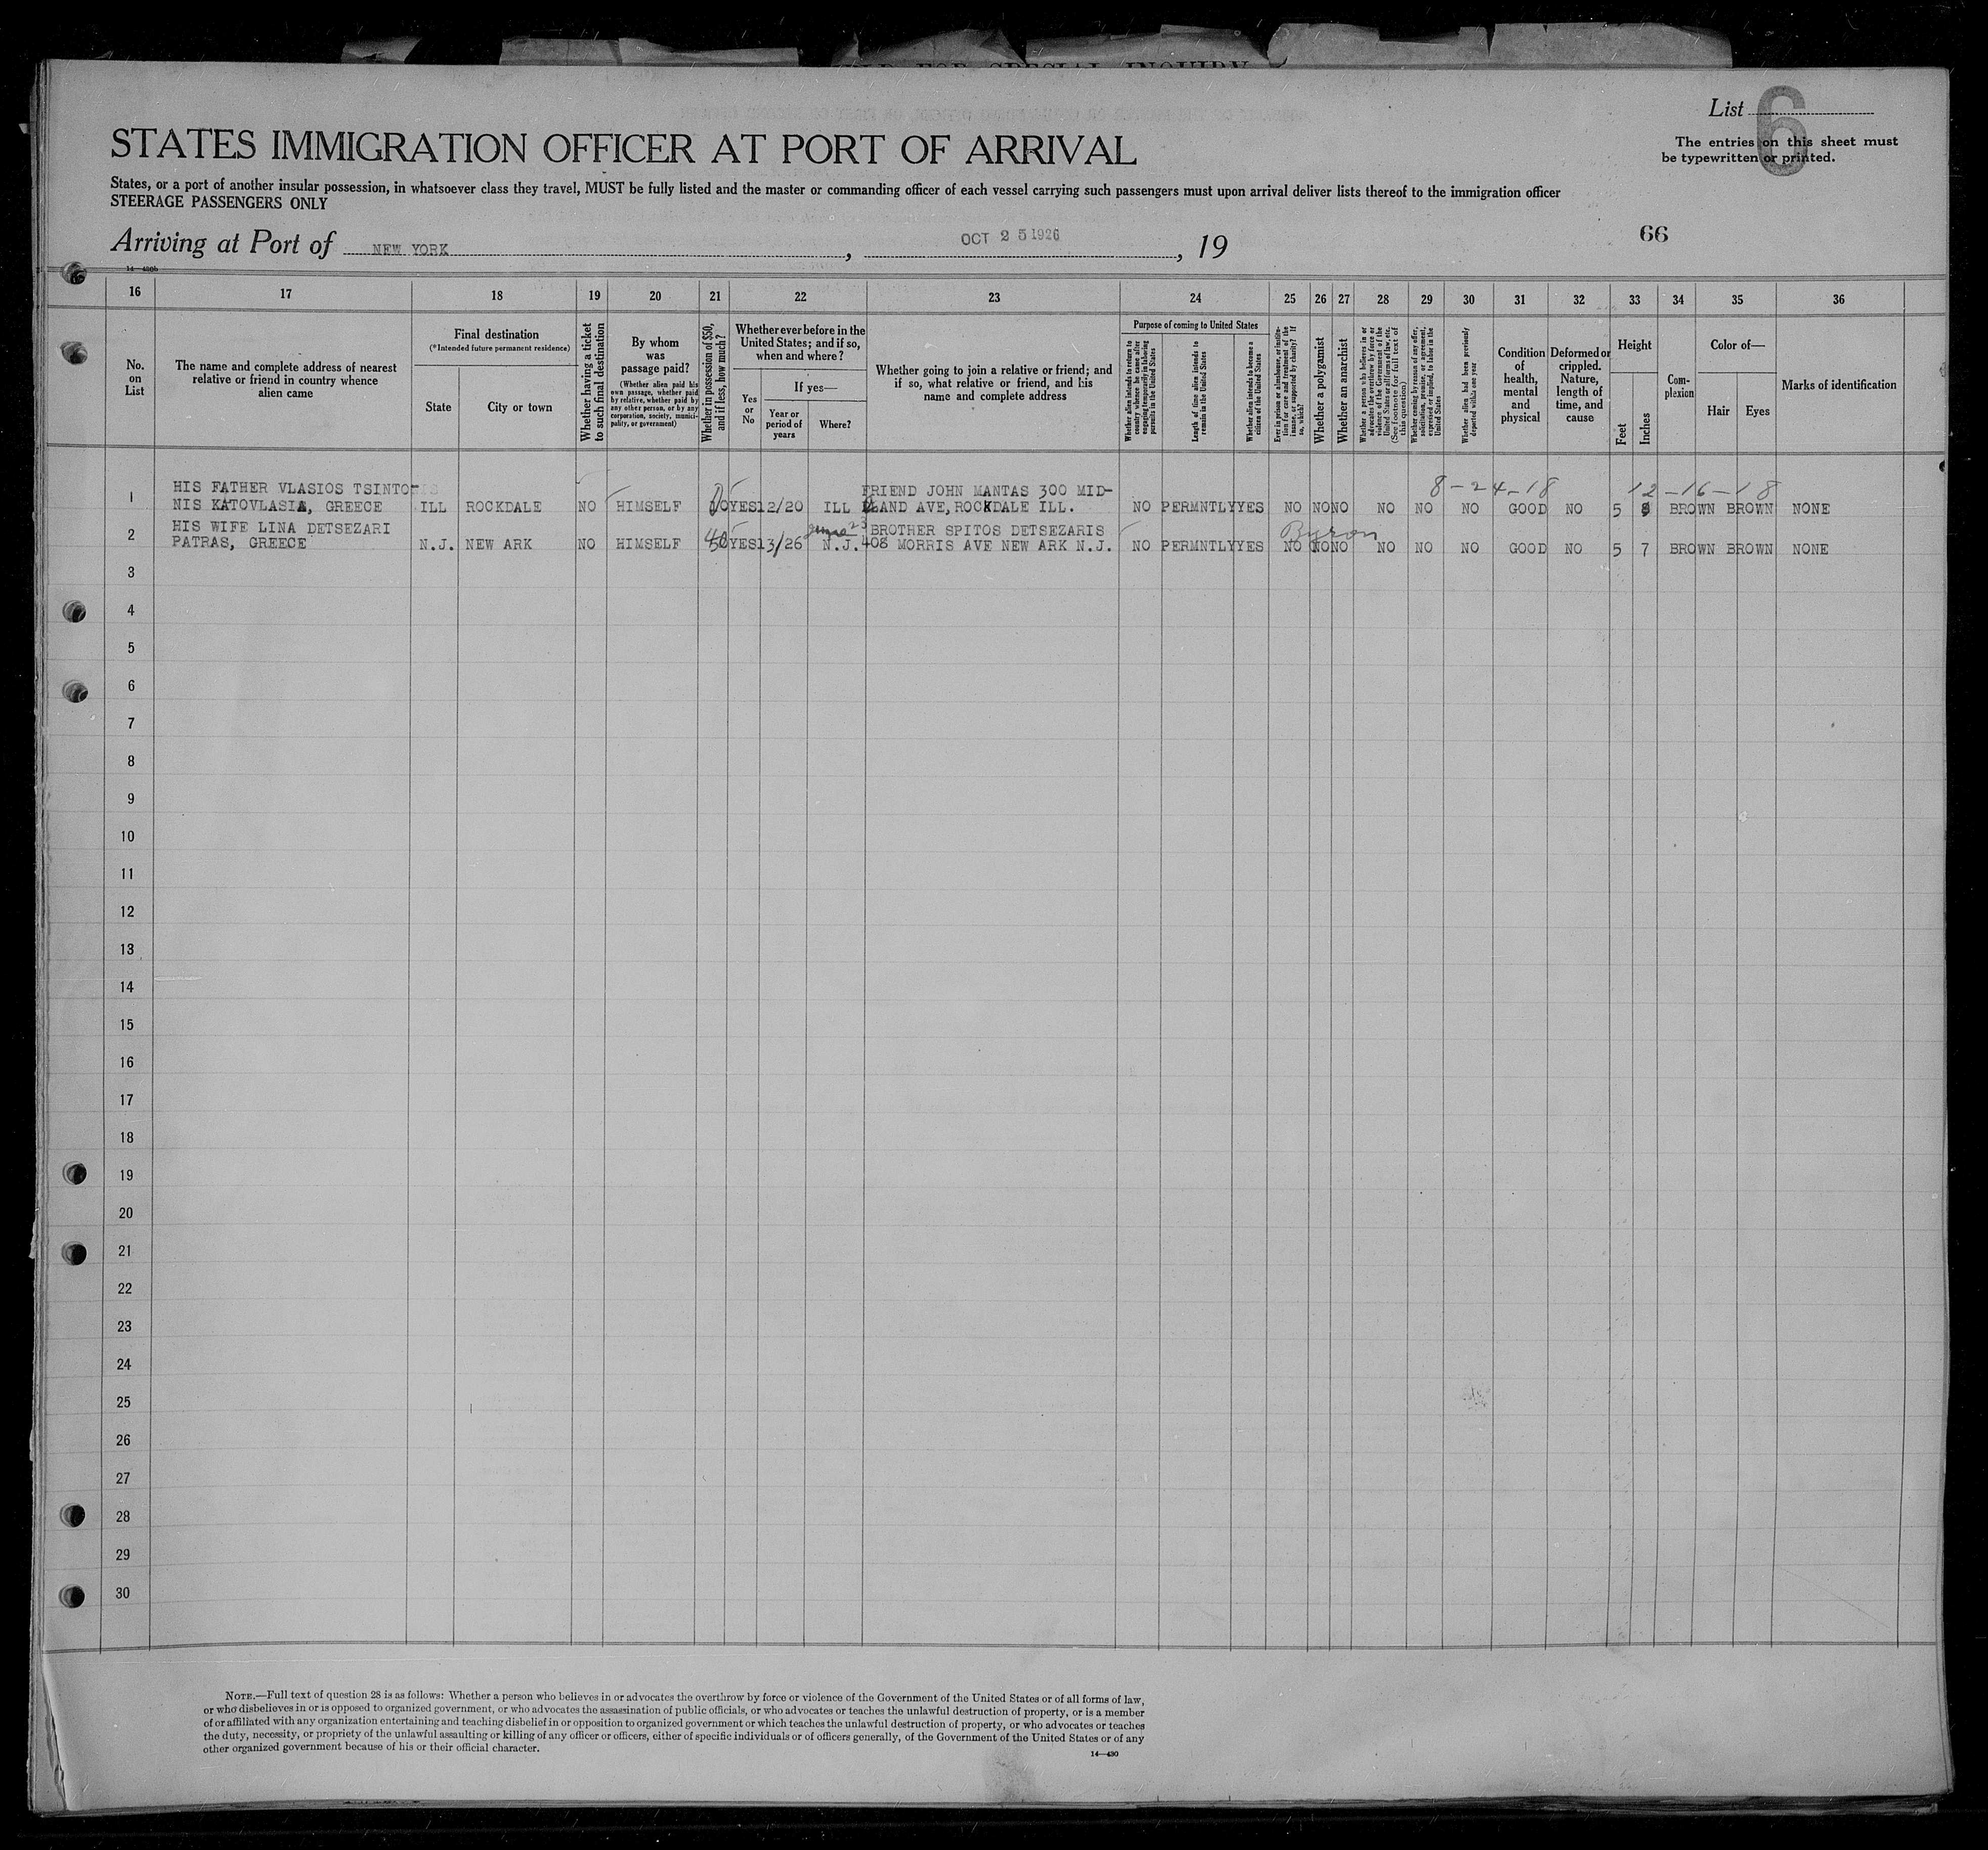 List 6
The entries on this sheet must
be typewritten or printed.
STATES IMMIGRATION OFFICER AT PORT OF ARRIVAL
States, or a port of another insular possession, in whatsoever class they travel, MUST be fully listed and the master or commanding officer of each vessel carrying such passengers must upon arrival deliver lists thereof to the immigration officer
STEERAGE PASSENGERS ONLY
Arriving at Port of NEW YORK, OCT 25 1926, 19
66
14—430b
16 17 18 19 20 21 22 23 24 25 26 27 28 29 30 31 32 33 34 35 36
No.
on
List
The name and complete address of nearest
relative or friend in country whence
alien came
Final destination
(*Intended future permanent residence)
State
City or town
Whether having a ticket
to such final destination
By whom
was
passage paid?
(Whether alien paid his
own passage, whether paid
by relative, whether paid by
any other person, or by any
corporation, society, munici-
pality, or government)
Whether in possession of $50,
and if less, how much?
Whether ever before in the
United States; and if so,
when and where?
Yes
or
No
If yes—
Year or
period of
years
Where?
Whether going to join a relative or friend; and
if so, what relative or friend, and his
name and complete address
Purpose of coming to United States
Whether alien intends to return to
country whence he came after
engaging temporarily in laboring
pursuits in the United States
Length of time alien intends to
remain in the United States
Whether alien intends to become a
citizen of the United States
Ever in prison or almshouse, or institu-
tion for care and treatment of the
insane, or supported by charity? If
so, which?
Whether a polygamist
Whether an anarchist
Whether a person who believes in or
advocates the overthrow by force or
violence of the Government of the
United States or all forms of law, etc.
(See footnote for full text of
this question)
Whether coming by reason of any offer,
solicitation, promise, or agreement,
expressed or implied, to labor in the
United States
Whether alien had been previously
deported within one year
Condition
of
health,
mental
and
physical
Deformed or
crippled.
Nature,
length of
time, and
cause
Height
Feet
Inches
Com-
plexion
Color of—
Hair
Eyes
Marks of identification
HIS FATHER VLASIOS TSINTO- FRIEND JOHN MANTAS 300 MID- 8-24-18 12-16-18
1 NIS KATOVLASIA, GREECE ILL ROCKDALE NO HIMSELF YES 12/20 ILL LAND AVE, ROCKDALE ILL. NO PERMNTLY YES NO NO NO NO NO NO GOOD NO 5 8 BROWN BROWN NONE
HIS WIFE LINA DETSEZARI June 23 BROTHER SPITOS DETSEZARIS Byron
2 PATRAS, GREECE N.J. NEW ARK NO HIMSELF YES 13/26 N.J. 408 MORRIS AVE NEW ARK N.J. NO PERMNTLY YES NO NO NO NO NO NO GOOD NO 5 7 BROWN BROWN NONE
3
4
5
6
7
8
9
10
11
12
13
14
15
16
17
18
19
20
21
22
23
24
25
26
27
28
29
30
NOTE.—Full text of question 28 is as follows: Whether a person who believes in or advocates the overthrow by force or violence of the Government of the United States or of all forms of law,
or who disbelieves in or is opposed to organized government, or who advocates the assassination of public officials, or who advocates or teaches the unlawful destruction of property, or is a member
of or affiliated with any organization entertaining and teaching disbelief in or opposition to organized government or which teaches the unlawful destruction of property, or who advocates or teaches
the duty, necessity, or propriety of the unlawful assaulting or killing of any officer or officers, either of specific individuals or of officers generally, of the Government of the United States or of any
other organized government because of his or their official character.
14—430